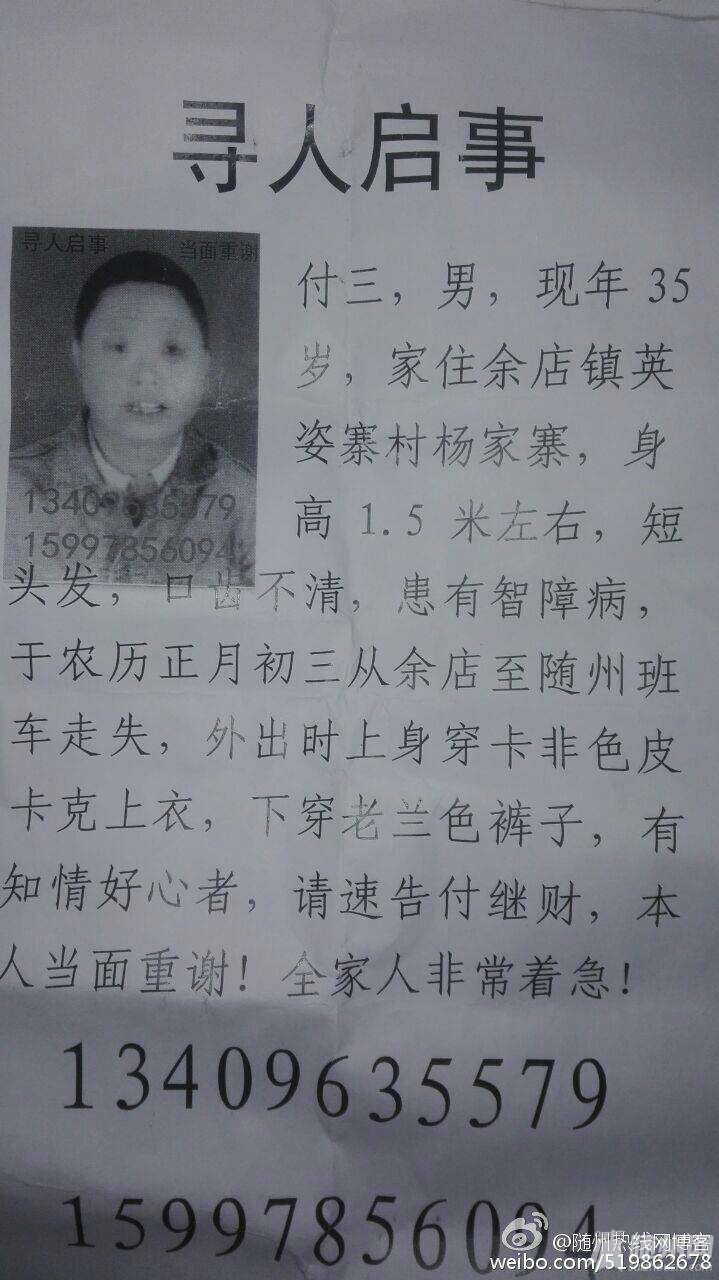 寻人启事
寻人启事 当面重谢
13409635579
15997856094
付三，男，现年 35
岁，家住余店镇英
姿寨村杨家寨，身
高 1.5 米左右，短
头发，口齿不清，患有智障病，
于农历正月初三从余店至随州班
车走失，外出时上身穿卡非色皮
卡克上衣，下穿老兰色裤子，有
知情好心者，请速告付继财，本
人当面重谢！全家人非常着急！
13409635579
15997856094
@随州热线网博客
weibo.com/519862678